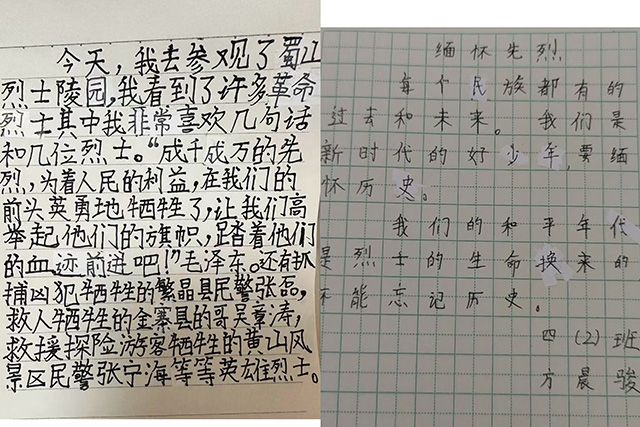 今天，我去参观了蜀山
烈士陵园，我看到了许多革命
烈士其中我非常喜欢几句话
和几位烈士。“成千成万的先
烈，为着人民的利益，在我们的
前头英勇地牺牲了，让我们高
举起他们的旗帜，踏着他们
的血迹前进吧！”毛泽东。还有抓
捕凶犯牺牲的繁昌县民警张磊，
救人牺牲的金寨县的哥吴章涛，
救援探险游客牺牲的黄山风
景区民警张宁海等等英雄烈士。
缅怀先烈
每个民族都有的
过去和未来。我们是
新时代的好少年，要缅
怀历史。
我们的和平年代
是烈士的生命换来的
不能忘记历史。
四（2）班
方晨骏